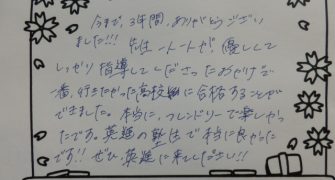 今まで、3年間、ありがとうござい
ました!!! 先生一人一人が、優しくて
しっかり指導してくださったおかげで
一番、行きたかった高校に合格することが
できました。本当に、フレンドリーで楽しかっ
たです。英進の塾生で本当に良かった
です!! ぜひ、英進に来てください!!